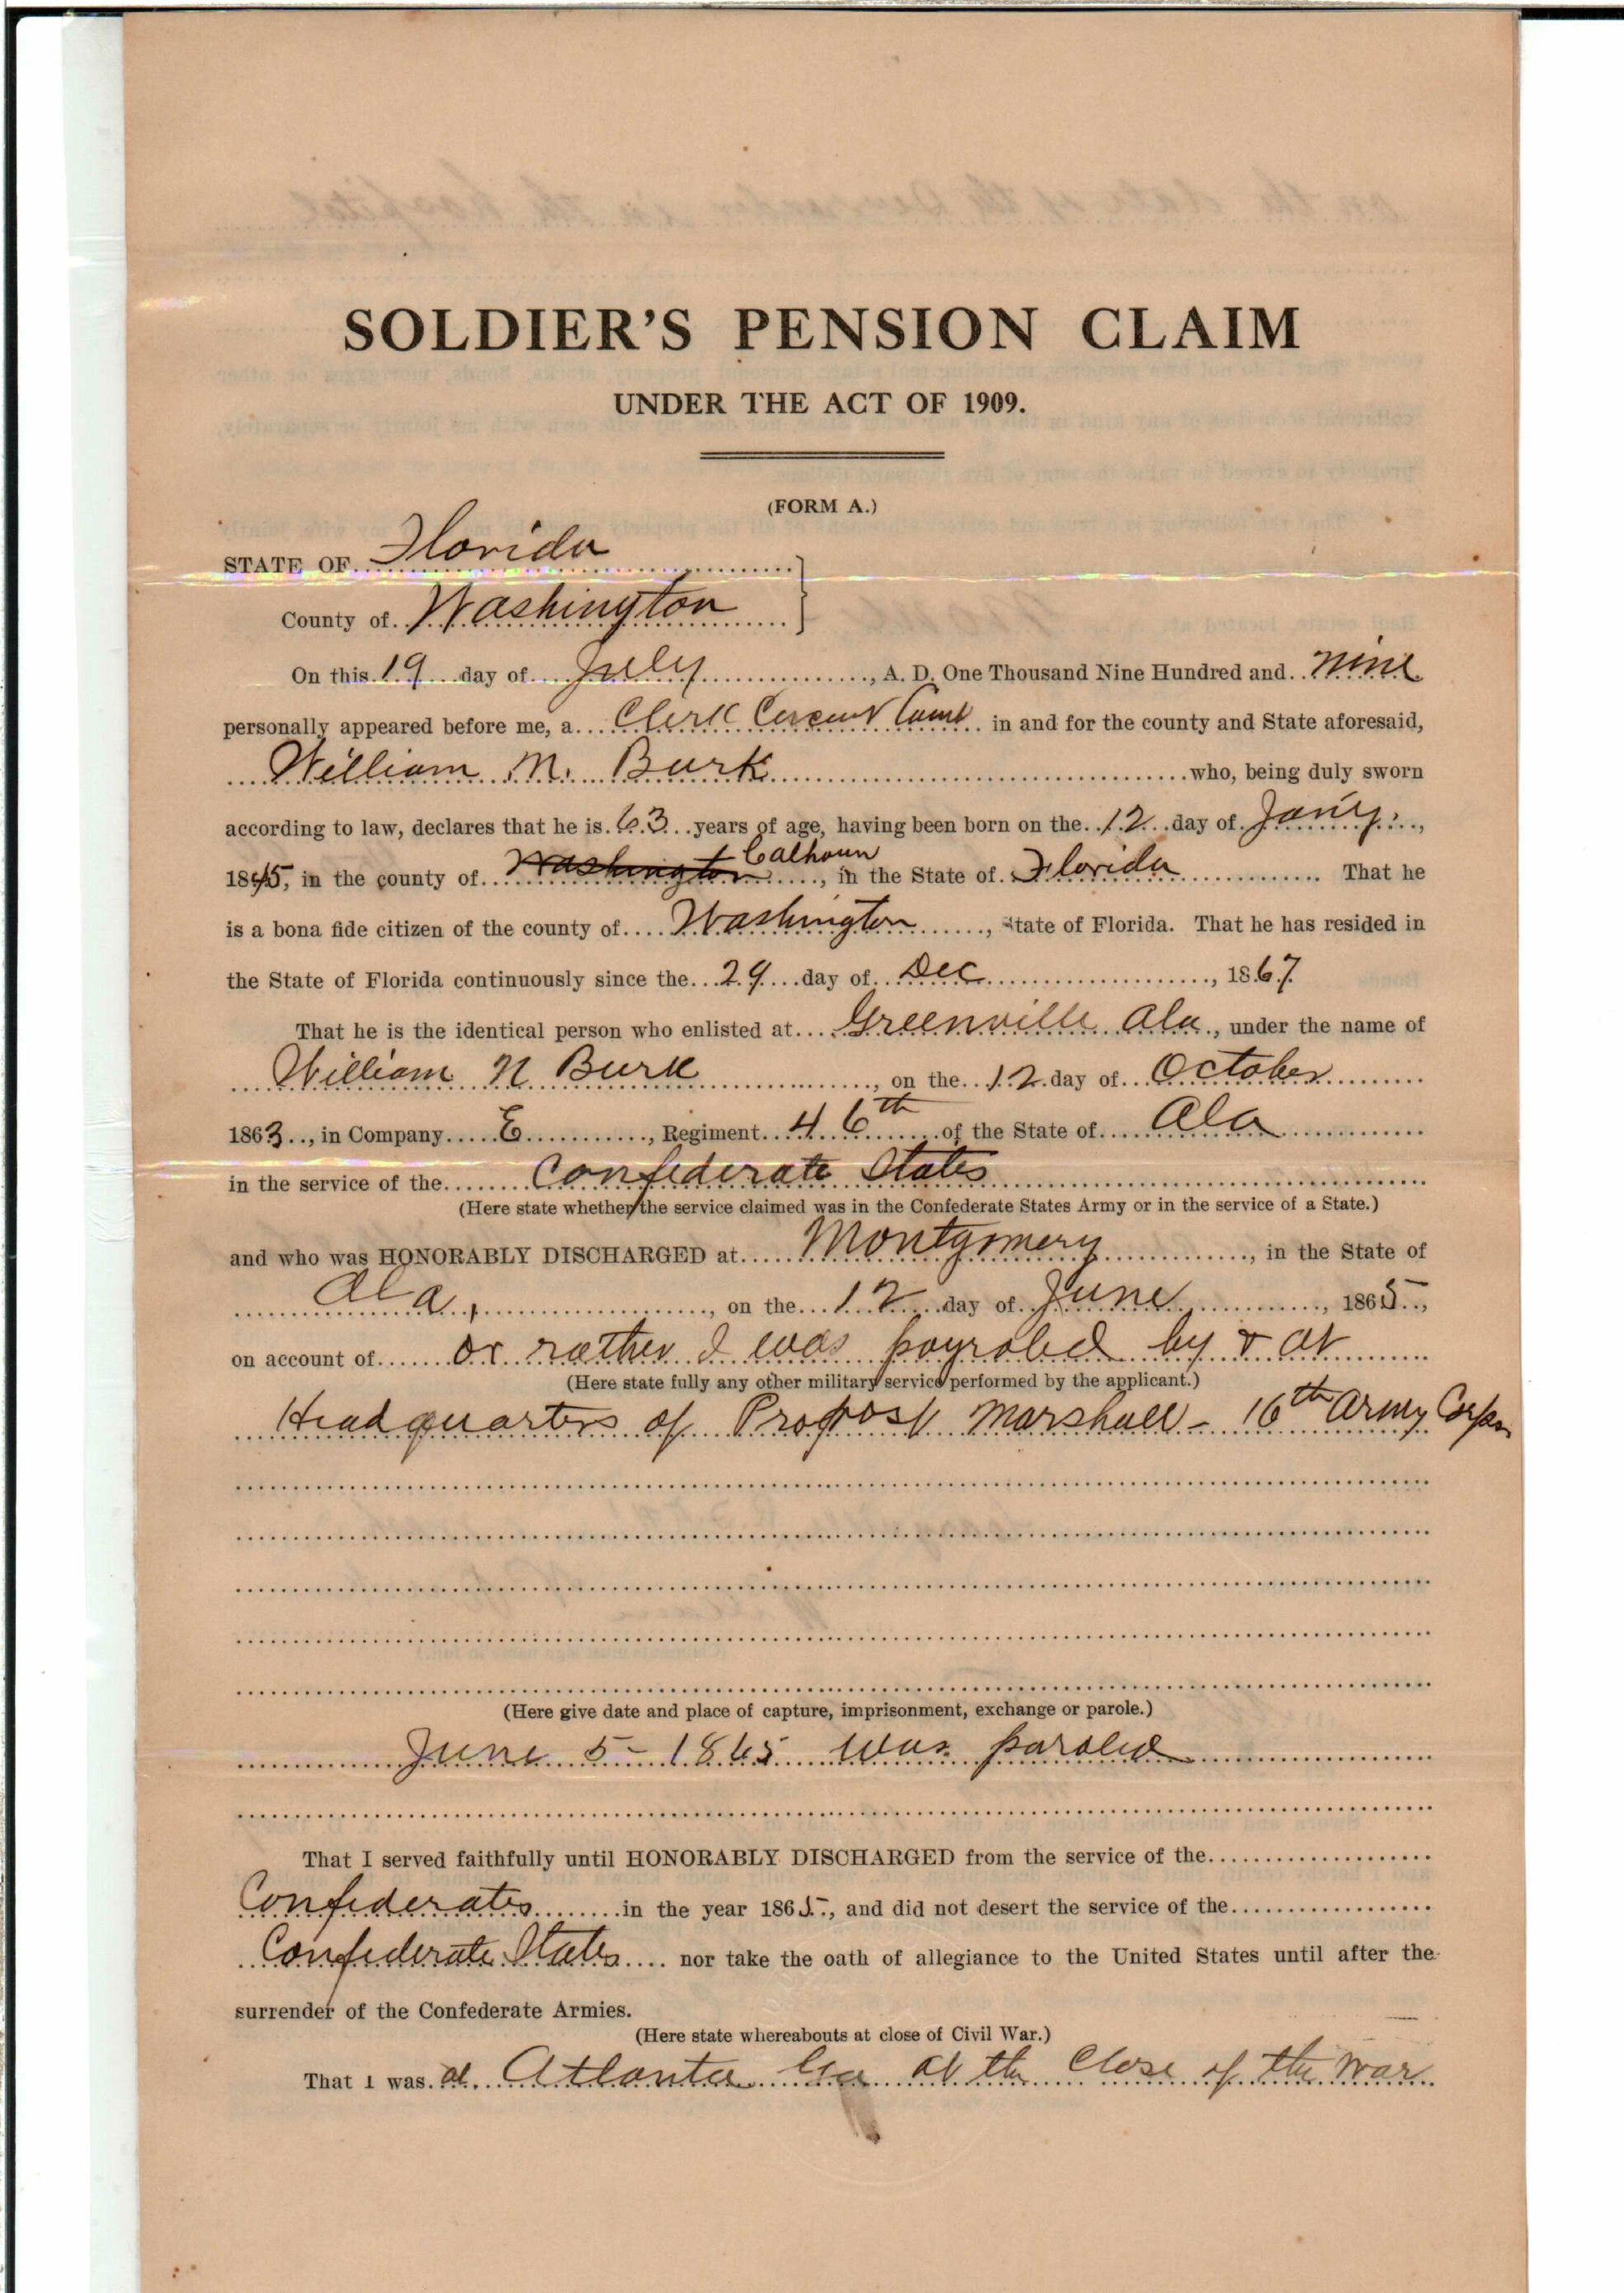 SOLDIER'S PENSION CLAIM
UNDER THE ACT OF 1909.
(FORM A.)
STATE OF Florida
County of Washington
On this 19 day of July, A. D. One Thousand Nine Hundred and nine
personally appeared before me, a Clerk Circuit Court in and for the county and State aforesaid,
William N. Burk who, being duly sworn
according to law, declares that he is 63 years of age, having been born on the 12 day of Jany,
1845, in the county of Washington Calhoun, in the State of Florida That he
is a bona fide citizen of the county of Washington, State of Florida. That he has resided in
the State of Florida continuously since the 29 day of Dec, 1867
That he is the identical person who enlisted at Greenville Ala, under the name of
William N Burk, on the 12 day of October
1863, in Company E, Regiment 46th of the State of Ala
in the service of the Confederate States
(Here state whether the service claimed was in the Confederate States Army or in the service of a State.)
and who was HONORABLY DISCHARGED at Montgomery, in the State of
Ala, on the 12 day of June, 1865,
on account of or rather I was payroled by & at
(Here state fully any other military service performed by the applicant.)
Headquarters of Provost Marshall - 16th Army Corps
(Here give date and place of capture, imprisonment, exchange or parole.)
June 5 - 1865 was paroled
That I served faithfully until HONORABLY DISCHARGED from the service of the
Confederates in the year 1865, and did not desert the service of the
Confederate States nor take the oath of allegiance to the United States until after the
surrender of the Confederate Armies.
(Here state whereabouts at close of Civil War.)
That I was at Atlanta Ga at the close of the war